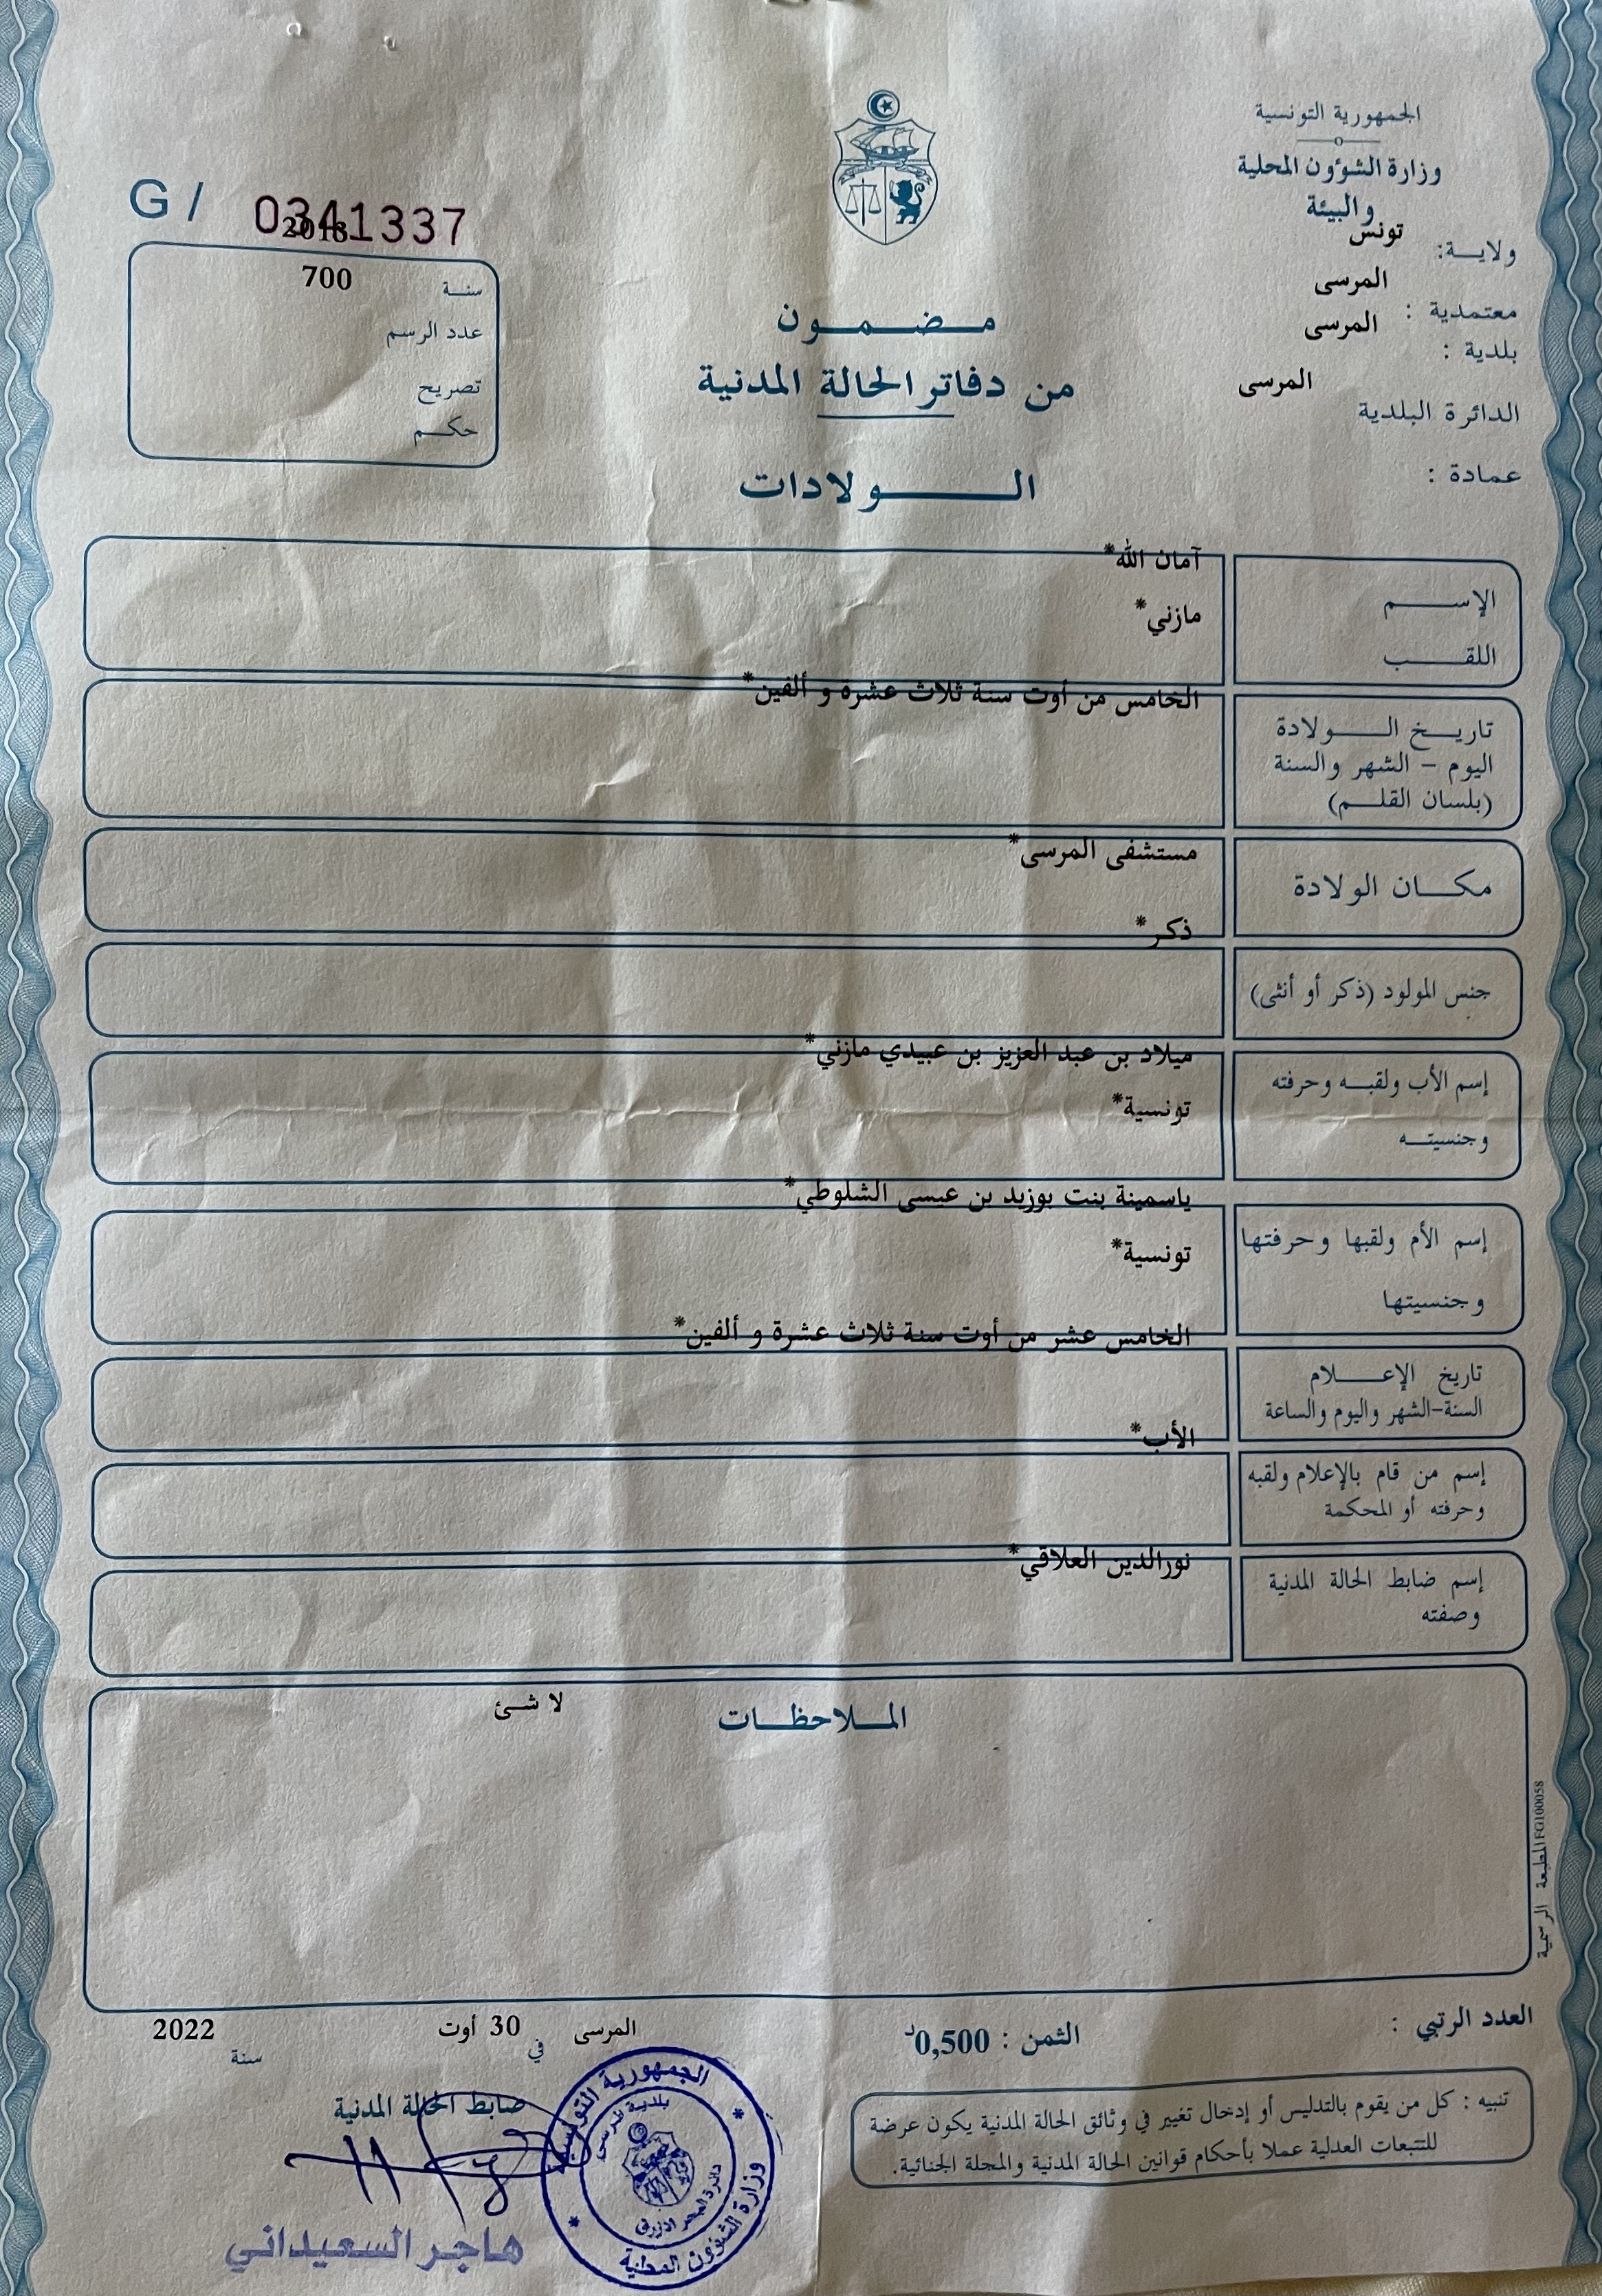 الجمهورية التونسية
وزارة الشؤون المحلية
والبيئة
ولاية: تونس
معتمدية : المرسى
بلدية : المرسى
الدائرة البلدية المرسى
عمادة :
مضمون
من دفاتر الحالة المدنية
الولادات
G / 0341337
سنة
700
عدد الرسم
تصريح
حكم
الإسم آمان الله*
اللقب مازني*
تاريخ الولادة الخامس من أوت سنة ثلاث عشرة و ألفين*
اليوم – الشهر والسنة
(بلسان القلم)
مكان الولادة مستشفى المرسى*
جنس المولود (ذكر أو أنثى) ذكر*
إسم الأب ولقبه وحرفته ميلاد بن عبد العزيز بن عبيدي مازني*
وجنسيته تونسية*
إسم الأم ولقبها وحرفتها ياسمينة بنت بوزيد بن عيسى الشلوطي*
وجنسيتها تونسية*
تاريخ الإعلام الخامس عشر من أوت سنة ثلاث عشرة و ألفين*
السنة-الشهر واليوم والساعة
إسم من قام بالإعلام ولقبه الأب*
وحرفته أو المحكمة
إسم ضابط الحالة المدنية نورالدين العلاقي*
وصفته
الملاحظات لا شئ
المطبعة الرسمية FG100058
العدد الرتبي :
الثمن : 0,500د
المرسى في 30 أوت سنة 2022
تنبيه : كل من يقوم بالتدليس أو إدخال تغيير في وثائق الحالة المدنية يكون عرضة
للتتبعات العدلية عملا بأحكام قوانين الحالة المدنية والمجلة الجنائية.
ضابط الحالة المدنية
الجمهورية التونسية
وزارة الشؤون المحلية
بلدية المرسى
دائرة البحر الازرق
هاجر السعيداني